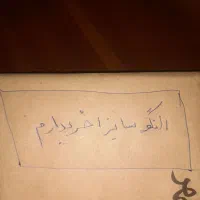 النگو سایز ۱ خریدارم